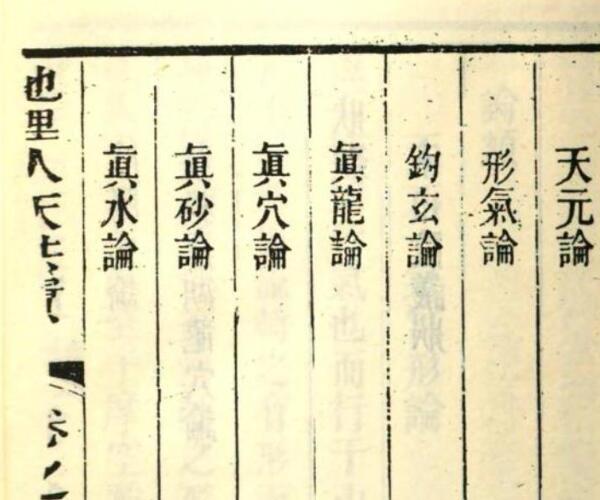 天元論
形氣論
鈎玄論
眞龍論
眞穴論
眞砂論
眞水論
地理人天共寶